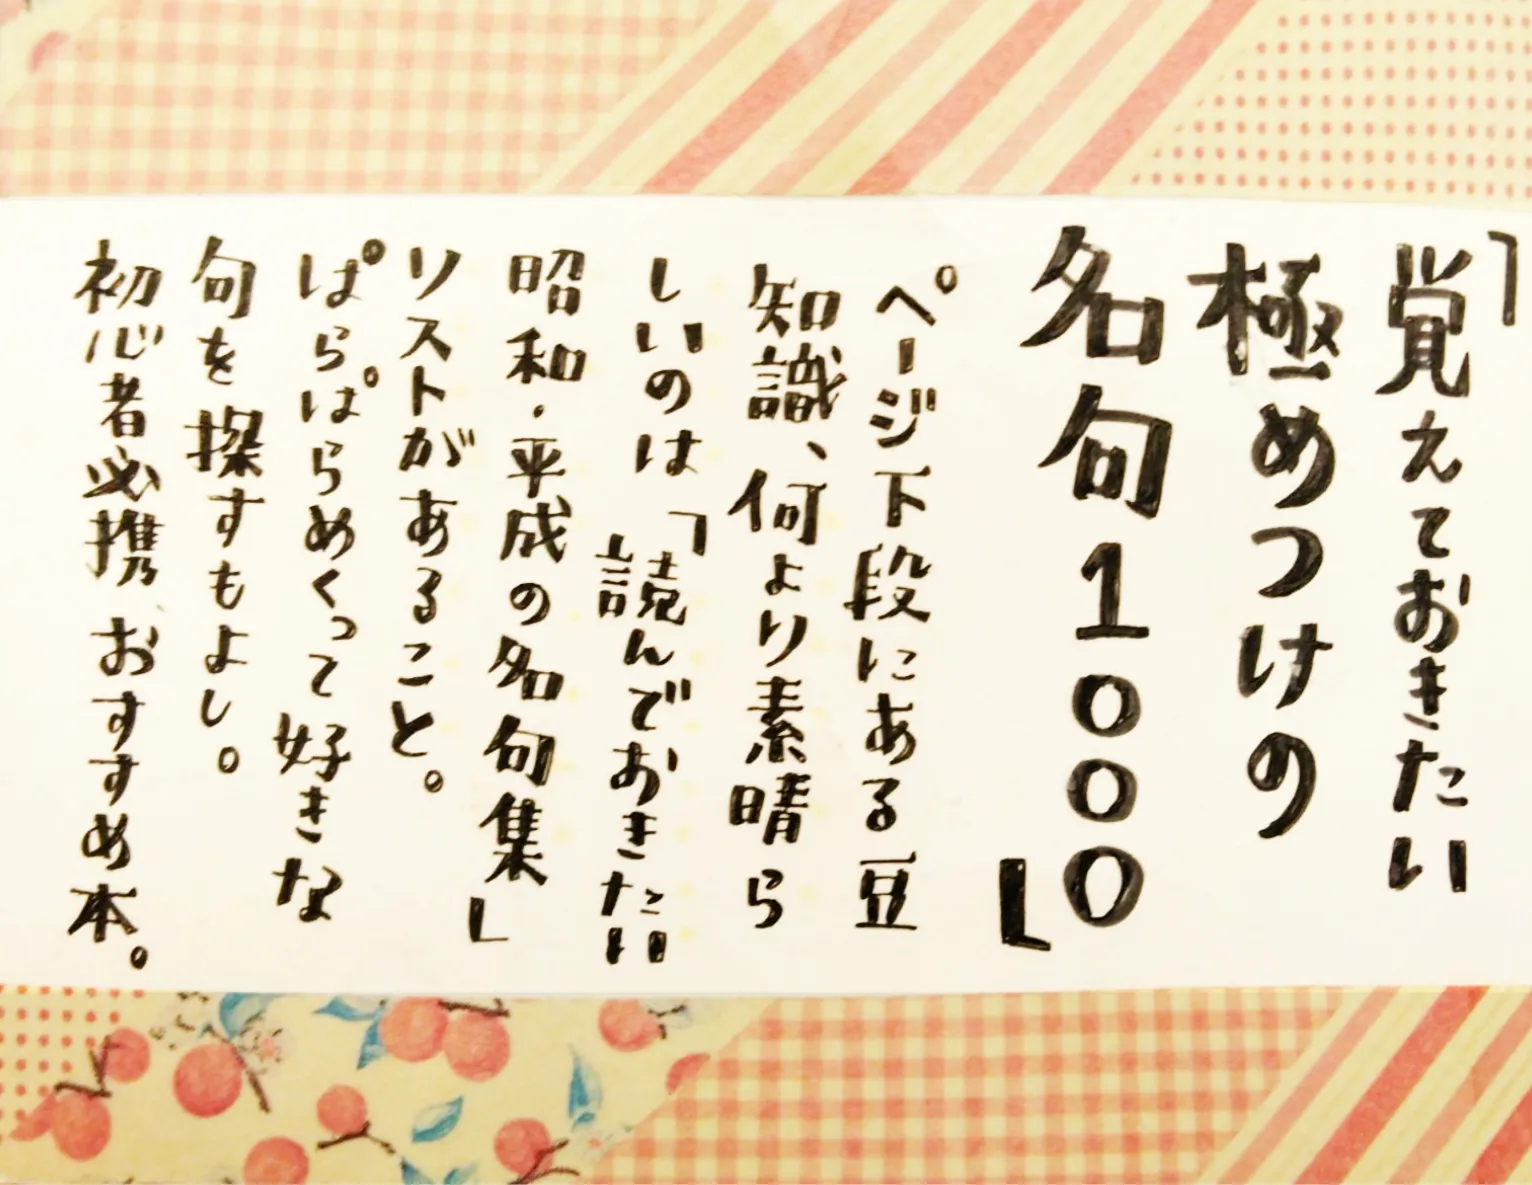 「覚えておきたい
極めつけの
名句1000」
ページ下段にある豆
知識、何より素晴ら
しいのは「読んでおきたい
昭和・平成の名句集」
リストがあること。
ぱらぱらめくって好きな
句を探すもよし。
初心者必携、おすすめ本。